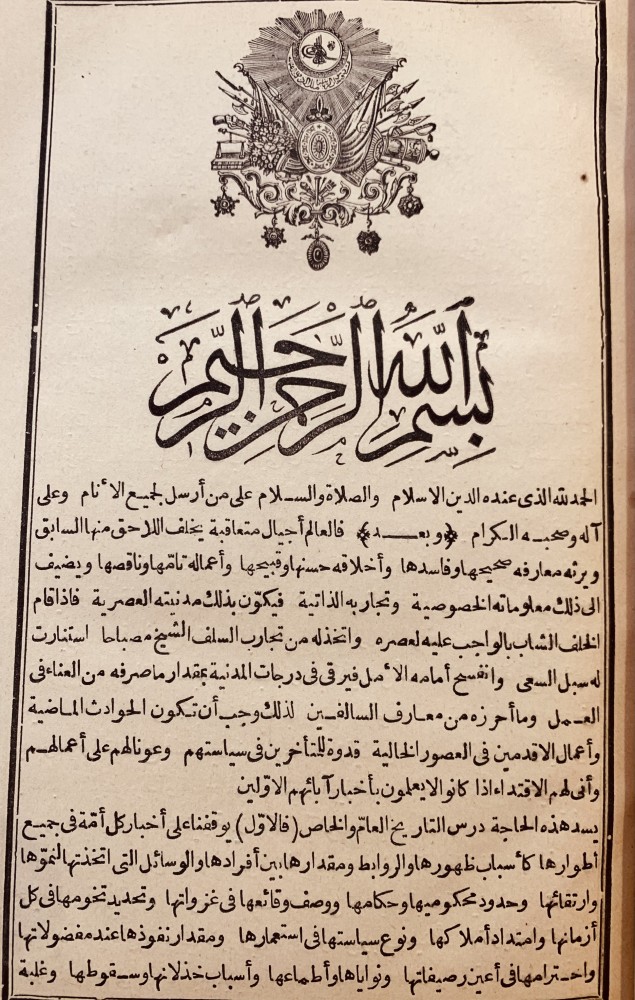 بسم الله الرحمن الرحيم
الحمد لله الذى عنده الدين الاسلام والصلاة والسلام على من أرسل لجميع الأنام وعلى
آله وصحبه الكرام ﴿وبعد﴾ فالعالم أجيال متعاقبة يخلف اللاحق منها السابق
ويرثه معارفه صحيحها وفاسدها وأخلاقه حسنها وقبيحها وأعماله تامّها وناقصها ويضيف
الى ذلك معلوماته الخصوصية وتجاربه الذاتية فيكوّن بذلك مدنيته العصرية فاذا قام
الخلف الشاب بالواجب عليه لعصره واتخذ له من تجارب السلف الشيخ مصباحا استنارت
له سبل السعى وانفسح أمامه الأمل فيرقى فى درجات المدنية بمقدار ما صرفه من العناء فى
العمل وما أحرزه من معارف السالفين لذلك وجب أن تكون الحوادث الماضية
وأعمال الاقدمين فى العصور الخالية قدوة للمتأخرين فى سياستهم وعونا لهم على أعمالهم
وأنى لهم الاقتداء اذا كانوا لا يعلمون بأخبار آبائهم الاوّلين
يسد هذه الحاجة درس التاريخ العامّ والخاص (فالاوّل) يوقفنا على أخبار كل أمّة فى جميع
أطوارها كأسباب ظهورها والروابط ومقدارها بين أفرادها والوسائل التى اتخذتها لنموّها
وارتقائها وحدود محكوميها وحكامها ووصف وقائعها فى غزواتها وتحديد تخومها فى كل
أزمانها وامتداد أملاكها ونوع سياستها فى استعمارها ومقدار نفوذها عند مفضولاتها
واحترامها فى أعين رصيفاتها ونواياها وأطماعها وأسباب خذلانها وسقوطها وغلبة